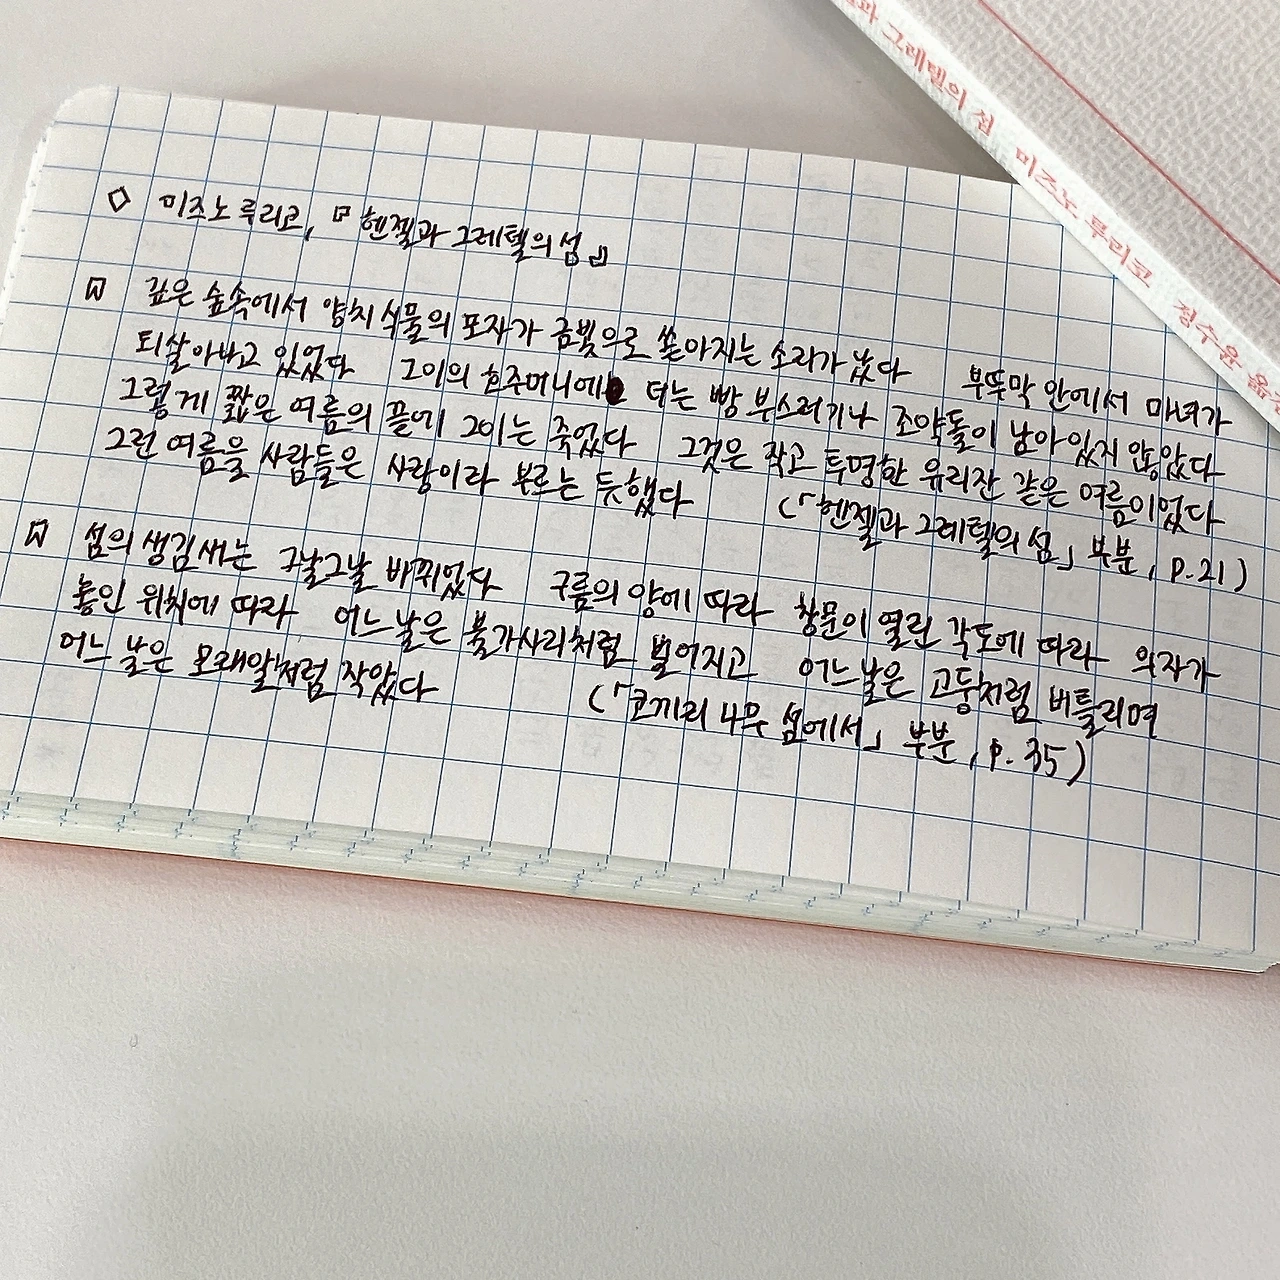 ◇ 미즈노 루리코, 『헨젤과 그레텔의 섬』
깊은 숲속에서 양치식물의 포자가 금빛으로 쏟아지는 소리가 났다 부뚜막 안에서 마녀가
되살아나고 있었다 그이의 호주머니에 더는 빵 부스러기나 조약돌이 남아있지 않았다
그렇게 짧은 여름의 끝에 그이는 죽었다 그것은 작고 투명한 유리잔 같은 여름이었다
그런 여름을 사람들은 사랑이라 부르는 듯했다 (「헨젤과 그레텔의 섬」 부분, p.21)
섬의 생김새는 그날그날 바뀌었다 구름의 양에 따라 창문이 열린 각도에 따라 의자가
놓인 위치에 따라 어느 날은 불가사리처럼 벌어지고 어느 날은 고둥처럼 비틀리며
어느 날은 모래알처럼 작았다 (「코끼리 나무 섬에서」 부분, p.35)
그레텔의 섬 미즈노 루리코 정수윤 옮